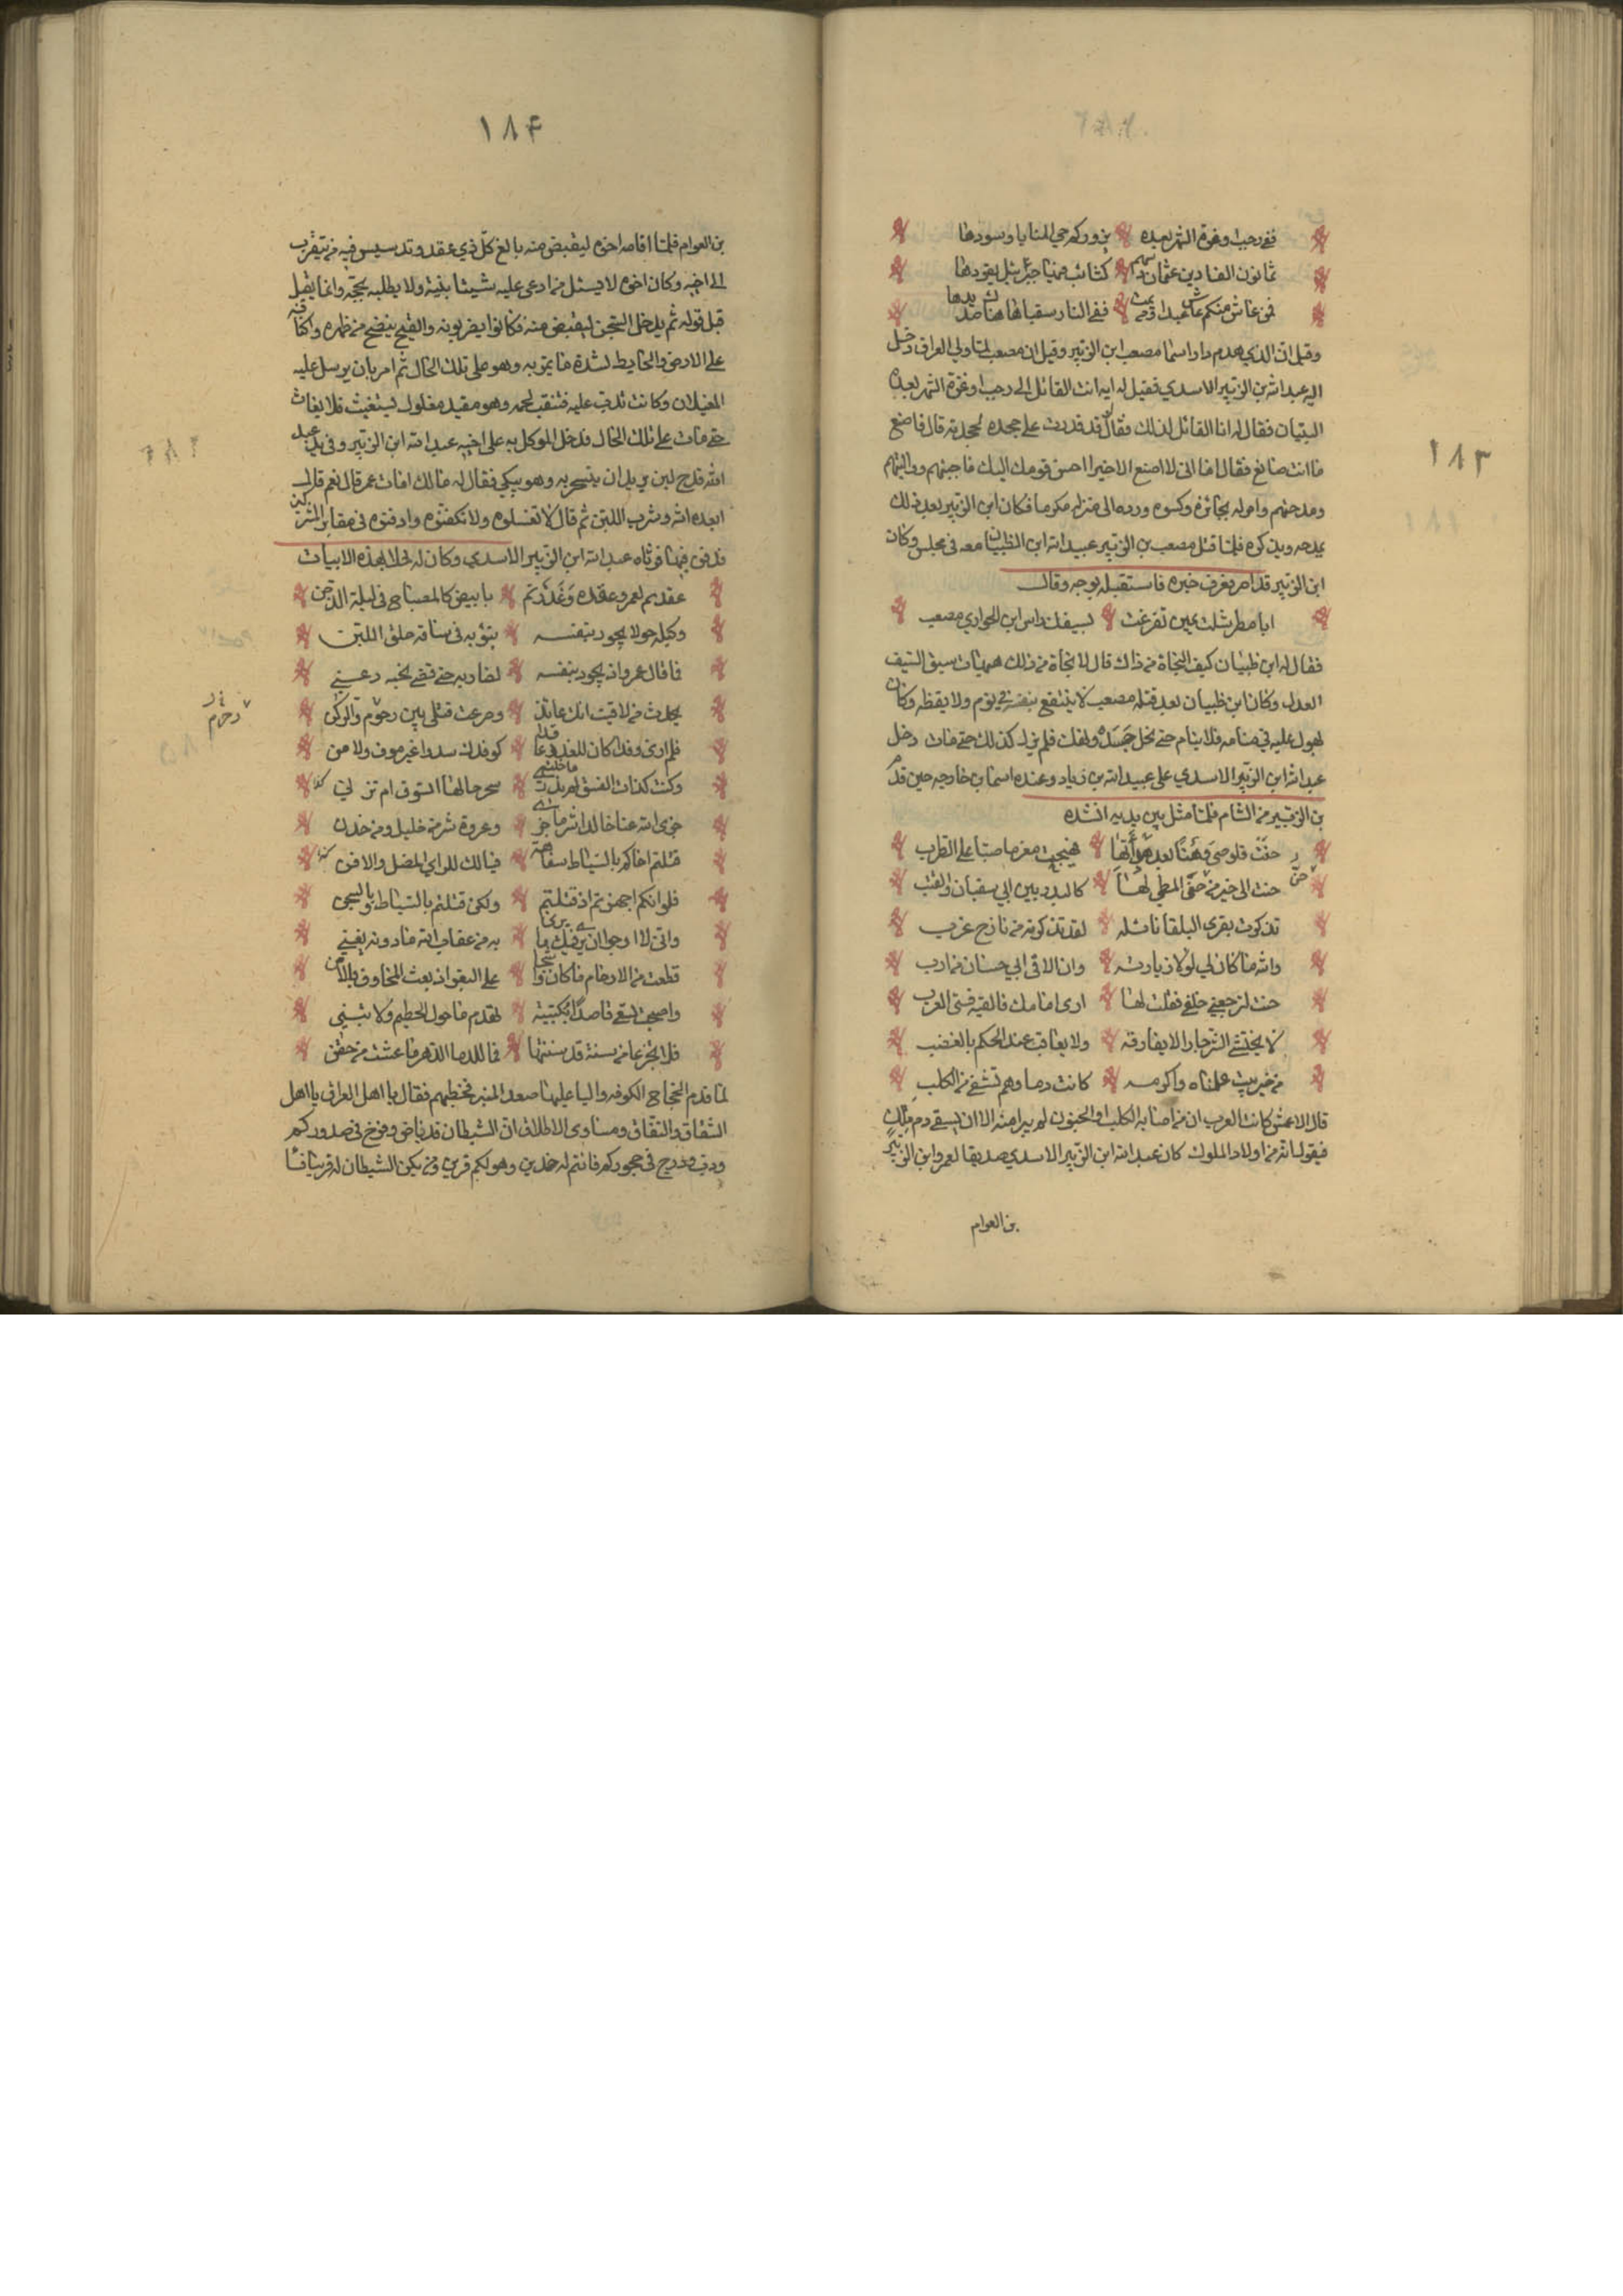 ١٨٣
ففي رجب وغرة الشهر بعده يزوركم حمي المنايا وسودها
ثمانون الفا دين عثمان دينهم كتائب فيها جبرئيل يقودها
فمن عاش منكم عاش عبدا ومن يمت ففي النار سقياها هناك صديدها
وقيل ان الذي هدم دار اسما مصعب ابن الزبير وقيل ان مصعب لما ولي العراق دخل
اليه عبد الله بن الزبير الاسدي فقيل له ايه انت القائل الى رجب او غرة الشهر بعده
البتيان فقال له انا القائل لذلك فقال قد قدرت على جحده لجحدته قال فاصنع
ما انت صانع فقال اما انى لا اصنع الا خيرا احسن قومك اليك فاجبتهم وواليتهم
ومدحتهم وامر له بجائزه وكسوه ورده الى منزله مكرما فكان ابن الزبير بعد ذلك
يمدحه ويذكره فلما قتل مصعب بن الزبير عبيد الله ابن الظبيان معه في مجلس وكان
ابن الزبير قد امر يعرف خبره فاستقبله بوجه وقال
ابا مطر شلت يمين تفرغت لسيفك راس ابن الحواري مصعب
فقال له ابن ظبيان كيف النجاة من ذاك قال لا نجاة من ذلك هيهات سبق السيف
العدل وكان ابن ظبيان بعد قتله مصعب لا ينتفع بنفسه في نوم ولا يقظه وكان
يهول عليه في منامه فلا ينام حتى نحل جسده ونهك فلم يزل كذلك حتى مات دخل
عبد الله ابن الزبير الاسدي على عبيد الله بن زياد وعنده اسما بن خارجه حين قدم
بن الزبير من الشام فلما مثل بين يديه انشده
حنت قلوصي وهنا بعد هدأتها فهيجت مغرما صبا على الطرب
حنت الى خير من حث المطي لها كالبدر بين ابي سفيان والعتب
تذكرت بقرى البلقا نائله لقد تذكرته من نازح عزب
والله ما كان لي لولا زيارته وان الاقى ابي حسان من ارب
حنت لترجعني خلفي فقلت لها ارى امامك فالقيه فتى العرب
لا يختشي الشر جار الا يفارقه ولا يعاقب عند الحكم بالغضب
من خير بيت علمناه واكرمه كانت دماوهم تشفي من الكلب
قال الاعمش كانت العرب ان من اصابه الكلب او الجنون لم يبرا منه الا ان يسقى دم ملك
فيقول انه من اولاد الملوك كان عبد الله ابن الزبير الاسدي صديقا لعمرو ابن الزبير
بن العوام
١٨٤
بن العوام فلما اقامه اخوه ليقتص منه بالغ كل ذي عقد وتدسيس فيه من يتقرب
الى اخيه وكان اخوه لا يسئل من ادعى عليه شيئا بينة ولا يطلبه بحجة وانما يقبل
قبل قوله ثم يدخل السجن ليقتص منه فكانوا يضربونه والقيح ينضح من ظهره واكتافه
على الارض والحايط لشدة ما يمر به وهو على تلك الحال ثم امر بان يرسل عليه
الجعلان وكانت تدب عليه فتثقب لحمه وهو مقيد مغلول يستغيث فلا يغاث
حتى مات على تلك الحال فدخل الموكل به على اخيه عبد الله ابن الزبير وفي يد عبد
الله قدح لبن يريد ان يتسحر به وهو يبكي فقال له مالك امات عمر قال نعم قال
ابعده الله وشرب اللبن ثم قال لا تغسلوه ولا تكفنوه وادفنوه في مقابر المشركين
فدفن فيها فرثاه عبد الله ابن الزبير الاسدي وكان له خلا بهذه الابيات
عقدتم لعمرو عقده وغدرتم بابيض كالمصباح في ليلة الدجن
وكبله حولا يجود بنفسه ينؤ به في ساقه حلق اللبن
فما قال عمرو اذ يجود بنفسه لضاربه حتى قضى نحبه دعني
يحدث من لاقيت انك عائذ وصرعت قتلى بين زمزم والركن
فلم ارى وفدا كان للغدر كوفدك سدوا غير موف ولا من
وكنت كذات الفسق لم تدر سحر حالها السوق ام تزني كذا
جزى الله عنا خالدا شر ما جزى وعروة شر من خليل ومن خدن
قتلتم اخاكم بالسياط سفاهة فيالك للراي المضلل والافن كذا
فلو انكم اجهزتم اذ قتلتم ولكن قتلتم بالسياط وبالسجن
واني لا ارجوا ان يرى فيك ما به من عقاب الله ما دونه يغني
قطعت من الارحام ما كان على
واصبحت تسعى قاصدا بكتيبة تهدم ما حول الحطيم ولا تبني
فلا تجزعا من سنة قد سننتها فما للدما الدهر ما عشت من حقن
لما قدم الحجاج الكوفه واليا عليها صعد المنبر فخطبهم فقال يا اهل العراق يا اهل
الشقاق والنفاق ومساوي الاخلاق ان الشيطان قد باض وفرخ في صدوركم
ودب ودرج في حجوركم فانتم له خدين وهو لكم قرين ومن يكن الشيطان له قرينا فسا